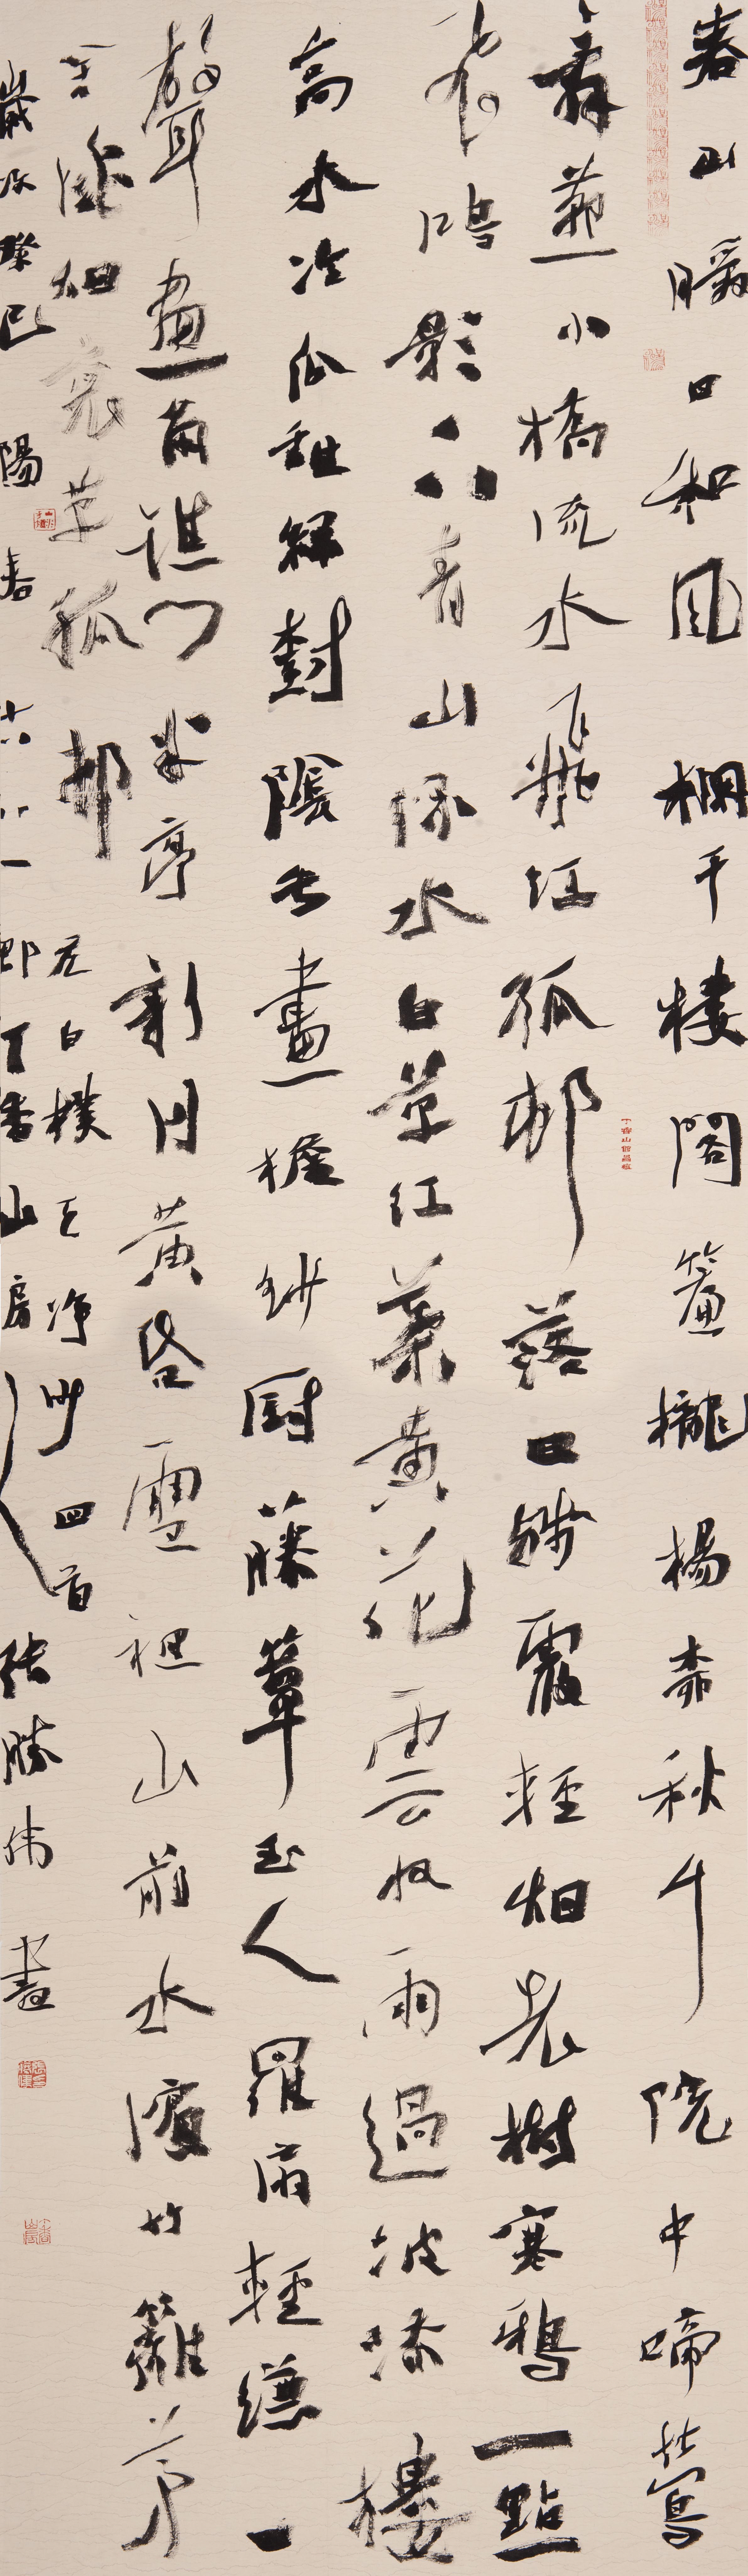 春山暖日和風欄干樓閣簾櫳楊柳秋千院中啼鶯
舞燕小橋流水飛紅孤邨落日殘霞輕烟老樹寒鴉一點
飛鴻影下青山綠水白草紅葉黃花雲收雨過波添樓
高水冷瓜甜綠樹陰垂畫檐紗廚藤簟玉人羅扇輕縑一
聲畫角譙門半亭新月黃昏雪裡山前水濱竹籬茅
舍淡烟衰草孤邨 元白樸天净沙四首
歲次癸巳陽春 丁香山房 张勝伟書